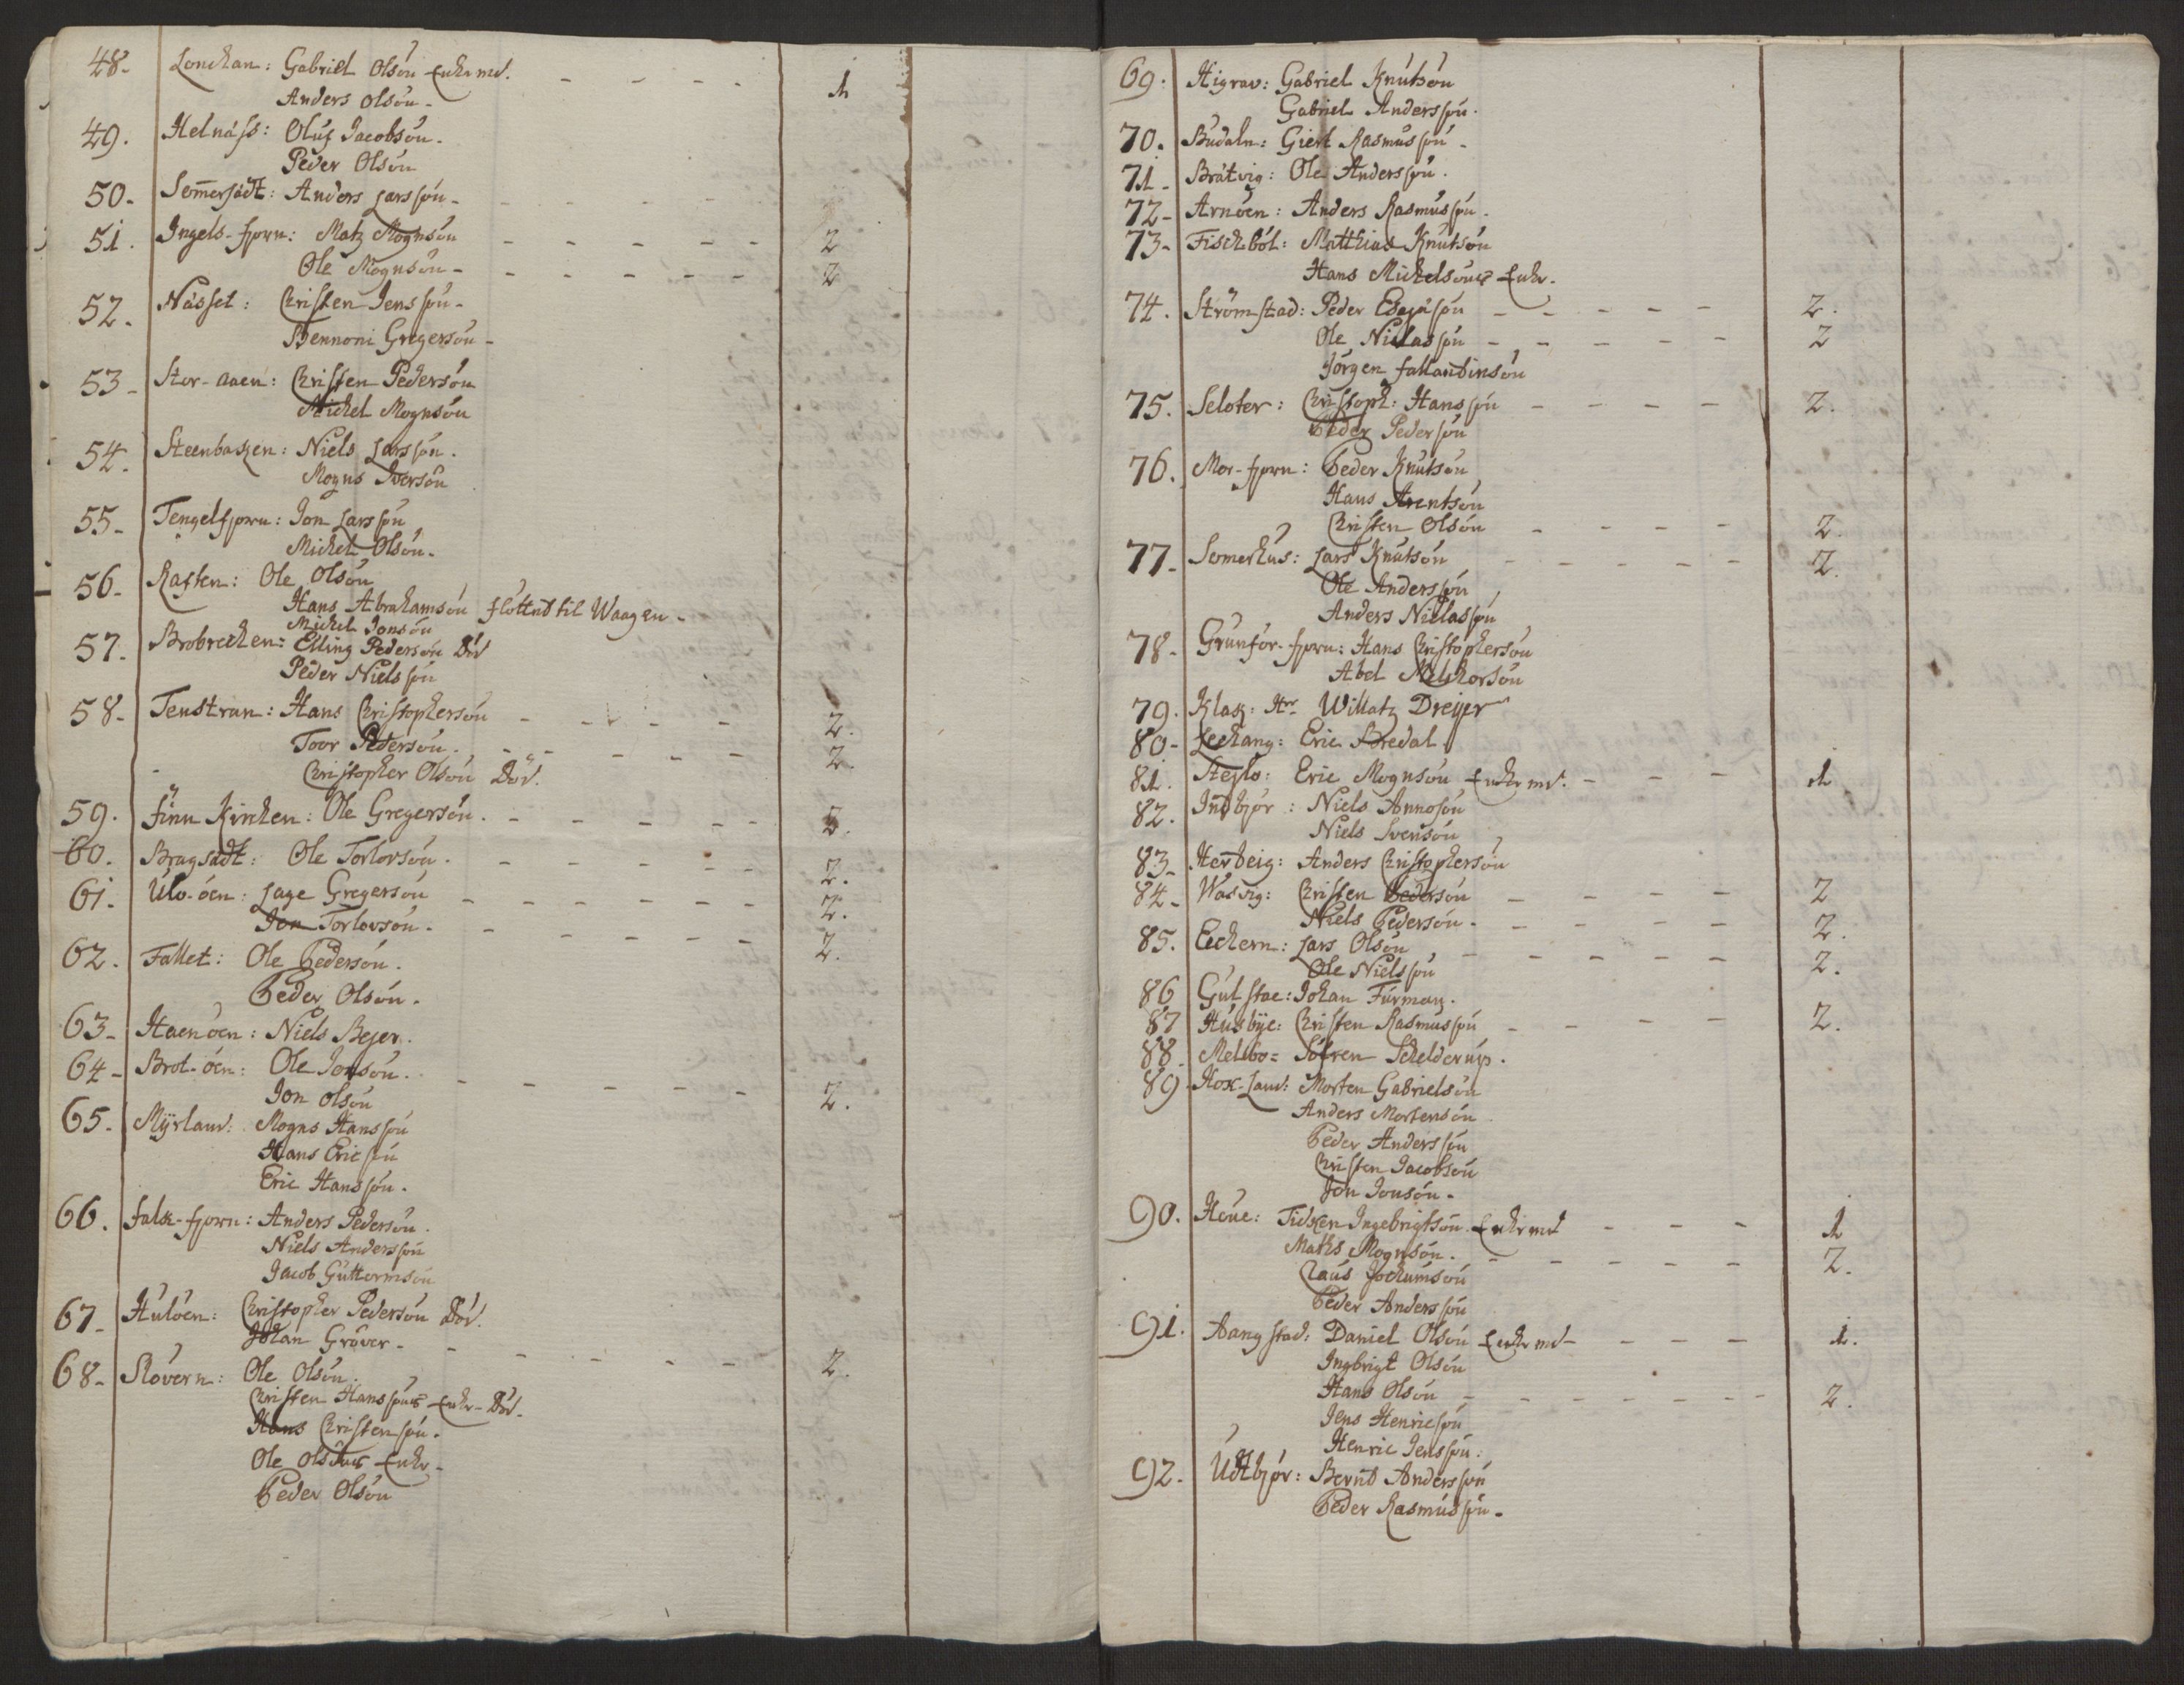 48. Lonckan: Gabriel Olsøn Enkemd. - - - - 1
Anders Olsøn.
49. Helnæss: Oluf Jacobsøn.
Peder Olsøn
50. Sem̄ersædt: Anders Larssøn. - - - -
51. Ingels-fjorn: Matz Mognsøn - - - - - 2
Ole Mognsøn - - - - - - 2
52. Næsset: Christen Jenssøn.
Bennoni Gregersøn -
53. Stor-aaen: Christen Pedersøn
Michel Mognsøn
54. Steenbaken: Niels Larssøn.
Mogns Iversøn
55. Tengelfjorn: Jon Larssøn
Michel Olsøn.
56. Raften: Ole Olsøn
Hans Abrahamsøn flöttnd til Waagen.
Michel Jonsøn
57. Brobrecken: Elling Pedersøn Död
Peder Nielssøn
58. Tenstran: Hans Christophersøn - - - - 2.
Toor Pedersøn. - - - - - 2.
Christopher Olsøn Död.
59. Finn Kircken: Ole Gregersøn. - - - - - 3.
60. Bragsædt: Ole Torlovsøn. - - - - - 2.
61. Ulv-öen: Lage Gregersøn - - - - - - 2.
Jon Torlovsøn. - - - - - - 2.
62. Fallet: Ole Pedersøn.
Peder Olsøn.
63. Haenöen: Niels Bejer.
64. Brot-öen: Ole Jonsøn. - - - - - -
Jon Olsøn 2.
65. Mÿrland: Mogns Hanssøn
Hans Ericsøn
Eric Hanssøn.
66. Falk-fjorn: Anders Pedersøn.
Niels Anderssøn
Jacob Guttormsøn
67. Hulöen: Christopher Pedersøn Död.
Johan Gröver. - - - - - -
68. Slövern: Ole Olsøn. 2.
Christen Hanssøns Enke - Död.
Hans Christensøn.
Ole Olsøns Enke.
Peder Olsøn
69. Higrav: Gabriel Knutsøn
Gabriel Anderssøn.
70. Budaln: Giert Rasmussøn.
71. Brätvig: Ole Anderssøn.
72. Arnöen: Anders Rasmussøn.
73. Fischböl: Matthias Knutsøn
Hans Michelsøns Enke.
74. Strömstad: Peder Esajæsøn - - - - - 2.
Ole Niclassøn - - - - - 2
Jörgen Fallandinsøn
75. Seloter: Christoph: Hanssøn - - - - 2.
Peder Pedersøn
76. Mor-fjorn: Peder Knutsøn
Hans Arentsøn
Christen Olsøn - - - - 2.
77. Somerhus: Lars Knutsøn - - - - - 2.
Ole Anderssøn
Anders Niclassøn
78. Grunför-fjorn: Hans Christophersøn
Abel Melchorsøn
79. Klak: Hr. Willatz Dreijer
80. Leckang: Eric Bredal
81. Steslo: Eric Mognsøn Enkemd. - - - 1
82. Indbjör: Niels Annosøn
Niels Svensøn
83. Herbeig: Anders Christophersøn
84. Wasvig: Christen Pedersøn - - - - 2
Niels Pedersøn. - - - - 2.
85. Eckern: Lars Olsøn - - - - - 2.
Ole Nielssøn
86 Gulstae: Johan Furman.
87 Husbÿe: Christen Rasmussøn - - - - 2.
88. Melbo= Sören Schelderup.
89. Hox-land: Morten Gabrielsøn
Anders Mortensøn
Peder Anderssøn
Christen Jacobsøn
Jon Jonsøn.
90. Heue: Tidsen Ingebrigtsøn Enkemd - - - 1
Maths Mognsøn. - - - - - 2.
Claus Jochumsøn
Peder Anderssøn
91. Aangstad: Daniel Olsøn Enkemd - - - - 1.
Ingbrigt Olsøn
Hans Olsøn - - - - - - 2.
Jens Henricsøn
Henric Jenssøn.
92. Udtbjør: Bernd Anderssøn
Peder Rasmussøn.